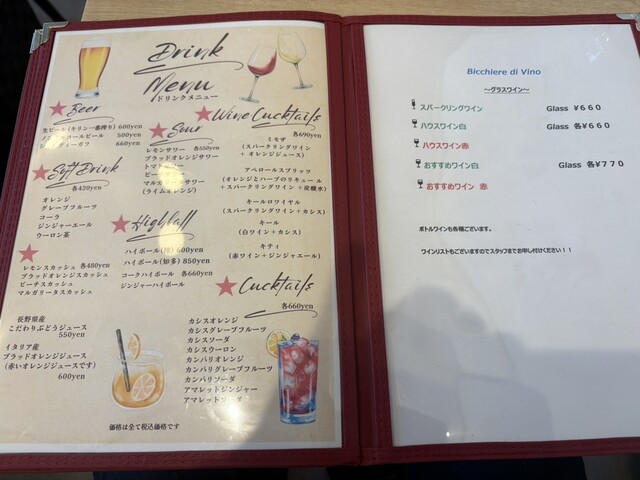 Drink
Menu
ドリンクメニュー
Beer
生ビール(キリン一番搾り) 600yen
ノンアルコールビール 500yen
シャンディーガフ 660yen
Soft Drink
各420yen
オレンジ
グレープフルーツ
コーラ
ジンジャーエール
ウーロン茶
レモンスカッシュ 各480yen
ブラッドオレンジスカッシュ
ピーチスカッシュ
マルガリータスカッシュ
長野県産
こだわりぶどうジュース
550yen
イタリア産
ブラッドオレンジジュース
(赤いオレンジジュースです)
600yen
Sour
レモンサワー 各550yen
ブラッドオレンジサワー
トマト
ピー
マルガ
(ライムオレンジ)
Highball
ハイボール(角) 600yen
ハイボール(知多) 850yen
コークハイボール 各660yen
ジンジャーハイボール
Wine Cucktails
各690yen
ミモザ
(スパークリングワイン
+ オレンジジュース)
アペロールスプリッツ
(オレンジとハーブのリキュール
+スパークリングワイン + 炭酸水)
キールロワイヤル
(スパークリングワイン+カシス)
キール
(白ワイン+カシス)
キティ
(赤ワイン+ジンジャエール)
Cucktails
各660yen
カシスオレンジ
カシスグレープフルーツ
カシスソーダ
カシスウーロン
カンパリオレンジ
カンパリグレープフルーツ
カンパリソーダ
アマレットジンジャー
アマレットソーダ
価格は全て税込価格です
Bicchiere di Vino
～グラスワイン～
スパークリングワイン Glass ￥６６０
ハウスワイン白 Glass 各￥６６０
ハウスワイン赤
おすすめワイン白 Glass 各￥７７０
おすすめワイン 赤
ボトルワインも各種ございます。
ワインリストもございますのでスタッフまでお申し付けください！！